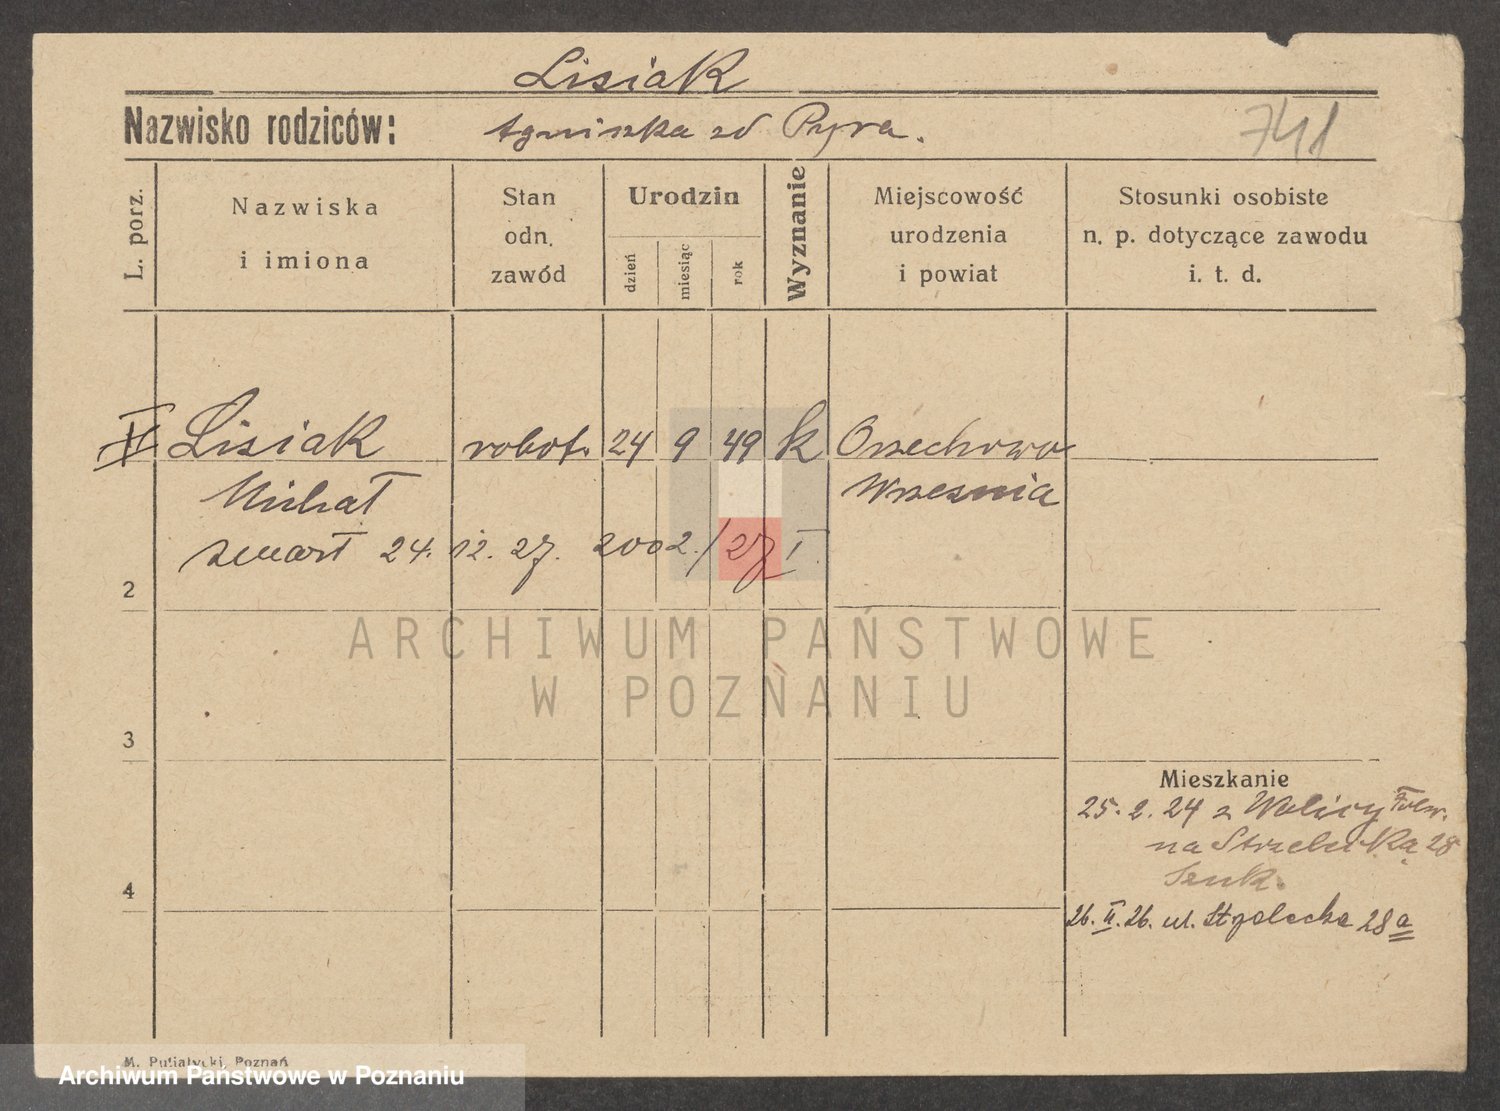 Lisiak
Nazwisko rodziców: Agniszka zd Pyra.
741
L. porz.
Nazwiska
i imiona
Stan
odn.
zawód
Urodzin
dzień
miesiąc
rok
Wyznanie
Miejscowość
urodzenia
i powiat
Stosunki osobiste
n. p. dotyczące zawodu
i. t. d.
Lisiak robotn. 24 9 49 k Orzechowo
Michał Wrzesnia
zmarł 24. 12. 27. 2002./27 I
2
ARCHIWUM PAŃSTWOWE
W POZNANIU
3
Mieszkanie
25. 2. 24 z Wolicy Folw.
na Strzelecką 28
4
26. II. 26. ul. Stzelecka 28a
M. Putiatycki, Poznań
Archiwum Państwowe w Poznaniu